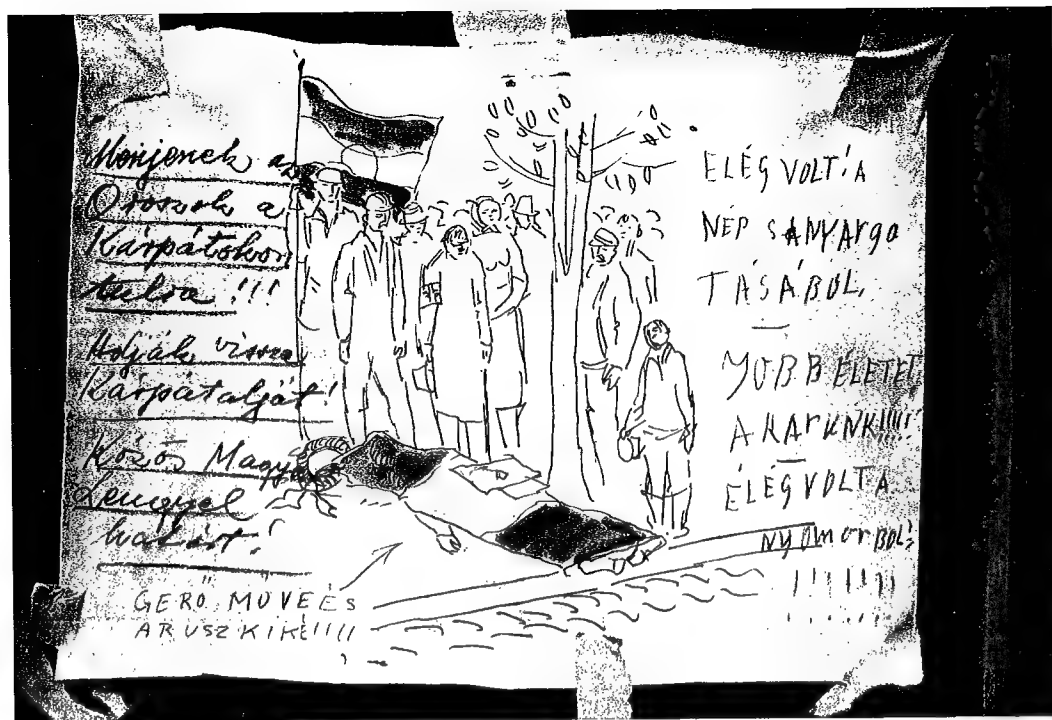 Menjenek az
Oroszok a
Kárpátokon
tulra !!!
Adják vissza
Kárpátalját!
Közös Magyar
Lengyel
határt!
GERŐ MŰVE ÉS
A RUSZKIKÉ!!!!!
ELÉG VOLT! A
NÉP SANYARGA
TÁSÁBÓL,
JOBB ÉLETET,
AKARUNK!!!!!
ELÉG VOLT A
NYOMORBÓL!
! ! ! ! ! ! !